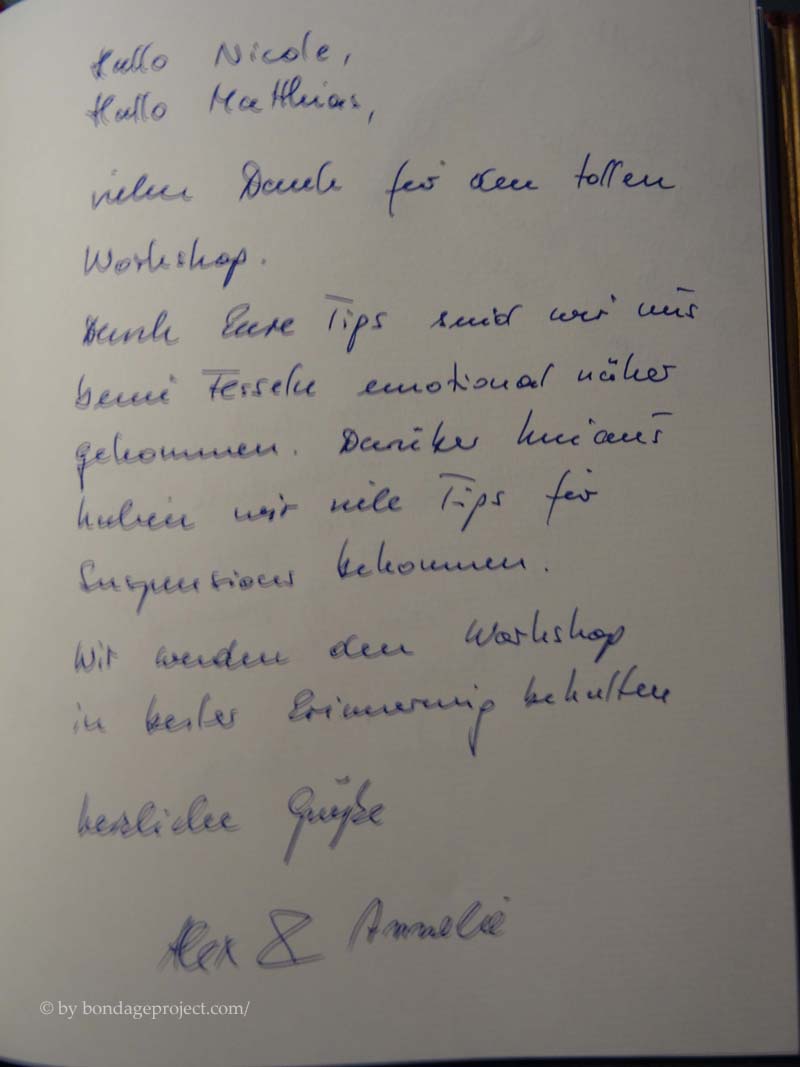 Hallo Nicole,
Hallo Matthias,
vielen Dank für den tollen
Workshop.
Dank Eure Tips sind wir uns
beim Fesseln emotional näher
gekommen. Darüber hinaus
haben wir viele Tips für
Suspensions bekommen.
Wir werden den Workshop
in bester Erinnerung behalten
herzliche Grüße
Alex & Annelie
© by bondageproject.com/